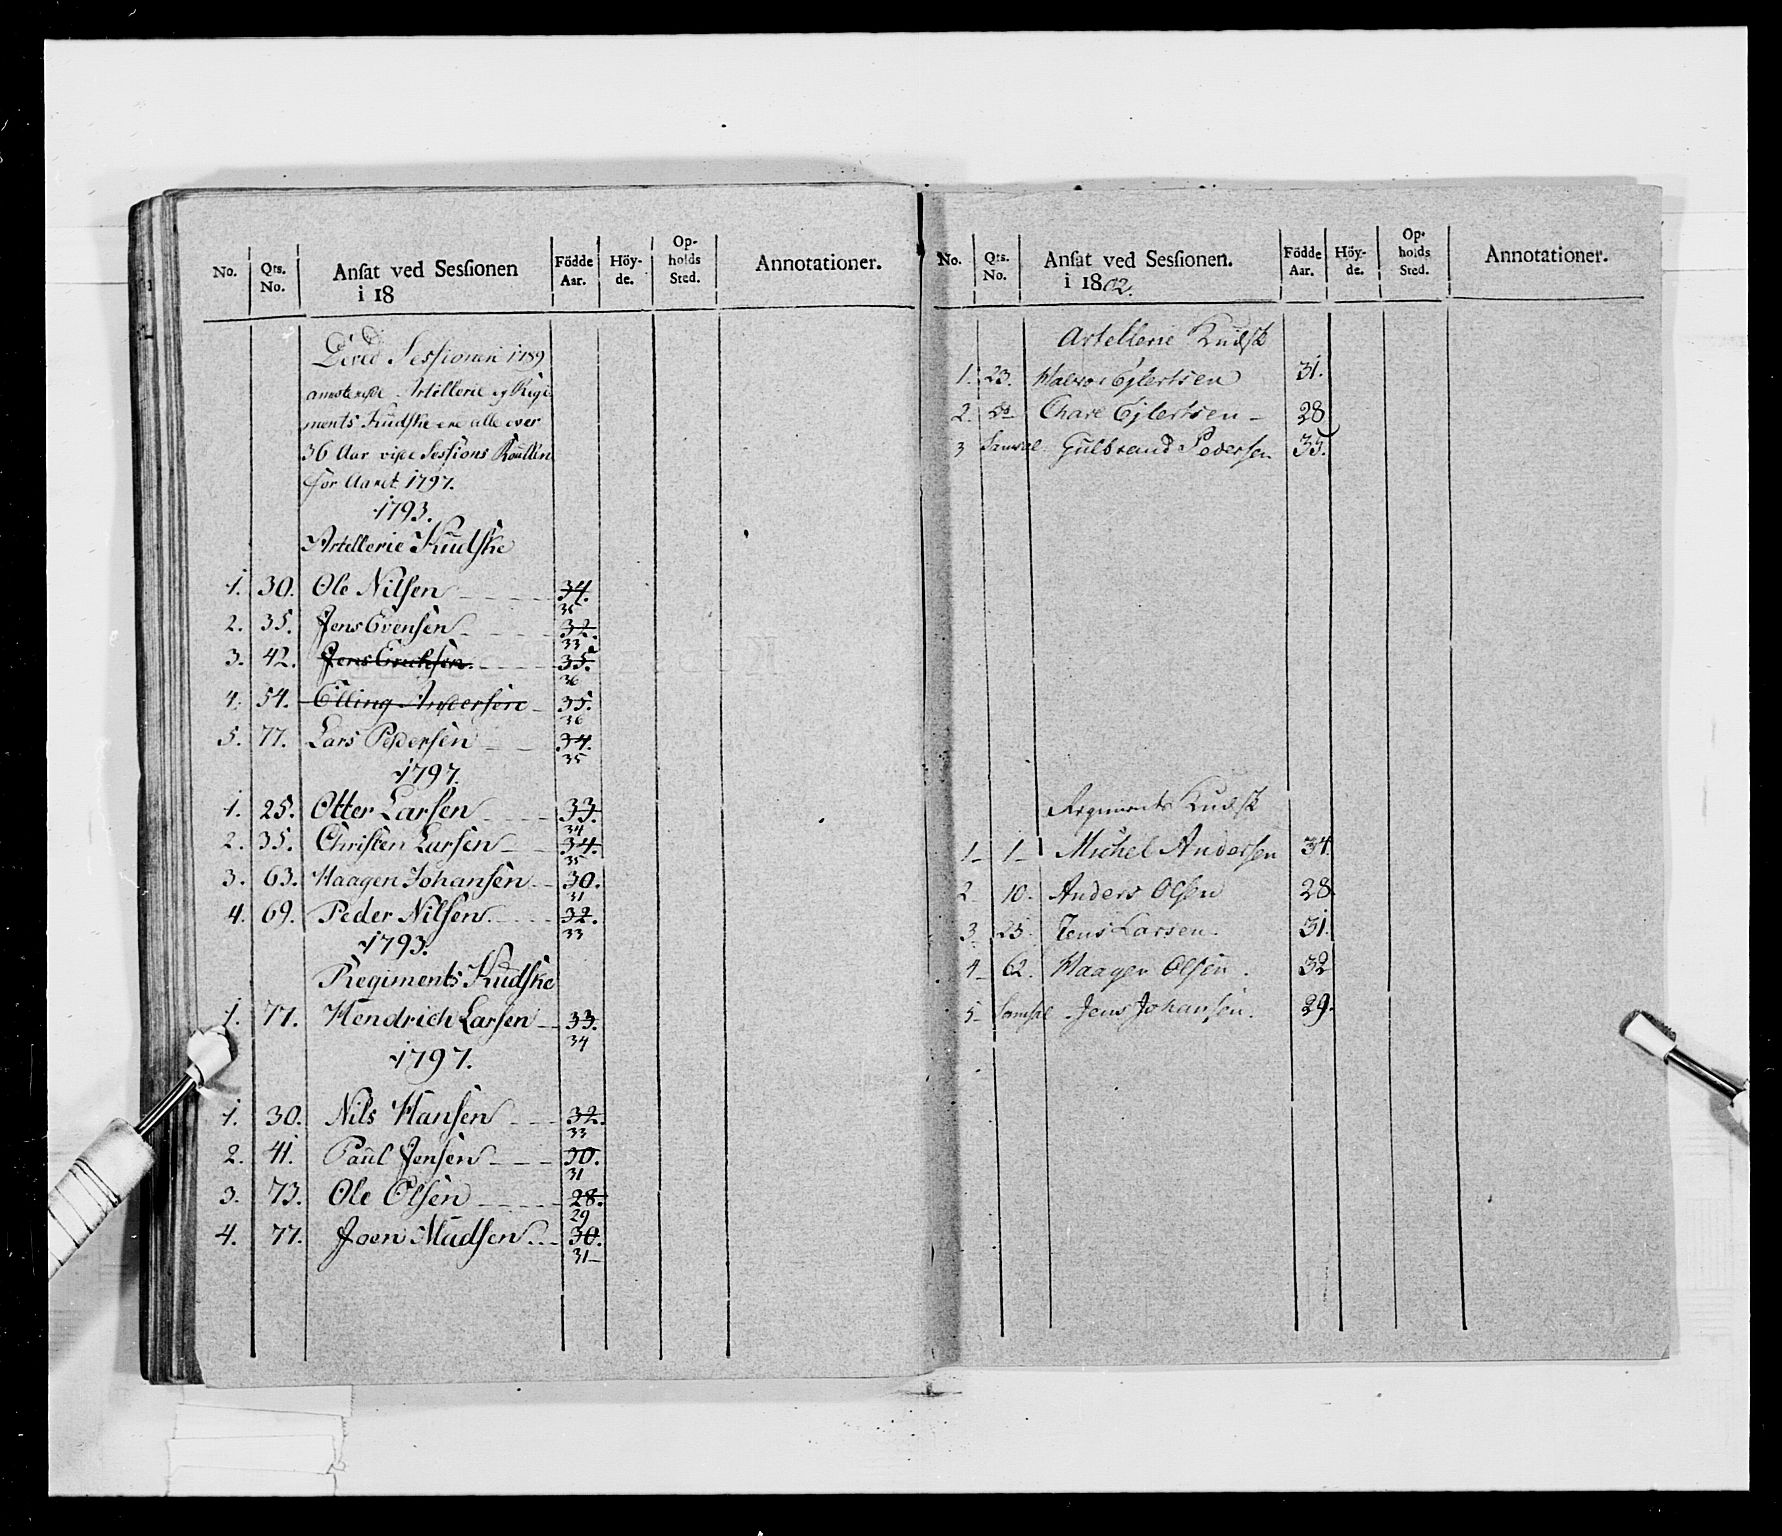 No. Qts. No. Ansat ved Sessionen i 18 Födde Aar. Höy-de. Op-holds Sted. Annotationer.
Sessionen 1789
Artillerie og Regi
ments Kudske ere alle over
36 Aar vise Sessions Roullen
for Aaret 1797.
1793.
Artillerie Kudske
1. 30. Ole Nilsen 34. 35
2. 35. Jens Evensen 32. 33
3. 42. Jens Erichsen. 35. 36
4. 54. Elling Andersen 35. 36
5. 77. Lars Pedersen 34. 35
1797.
1. 25. Otter Larsen 33. 34
2. 35. Christen Larsen 34. 35
3. 63. Haagen Johansen 30. 31
4. 69. Peder Nilsen 32. 33
1793.
Regiments Kudske
1. 77. Hendrich Larsen 33. 34
1797.
1. 30. Nils Hansen 32. 33
2. 41. Paul Jensen 30. 31
3. 73. Ole Olsen 28. 29
4. 77. Joen Madsen 30. 31
No. Qts. No. Ansat ved Sessionen. i 1802. Födde Aar. Höy-de. Op-holds Sted. Annotationer.
Artellerie Kudsk
1. 23. Halvor Ejlertsen 31.
2. do Ejlertsen 28
3 Gulbrand Pedersen 35.
Regiments Kudsk
1 1 Michel Andersen 34.
2 10. Anders Olsen 28
3. 25. Jens Larsen. 31.
4 62. Haagen Olsen. 32
5 Jens Johansen. 29.